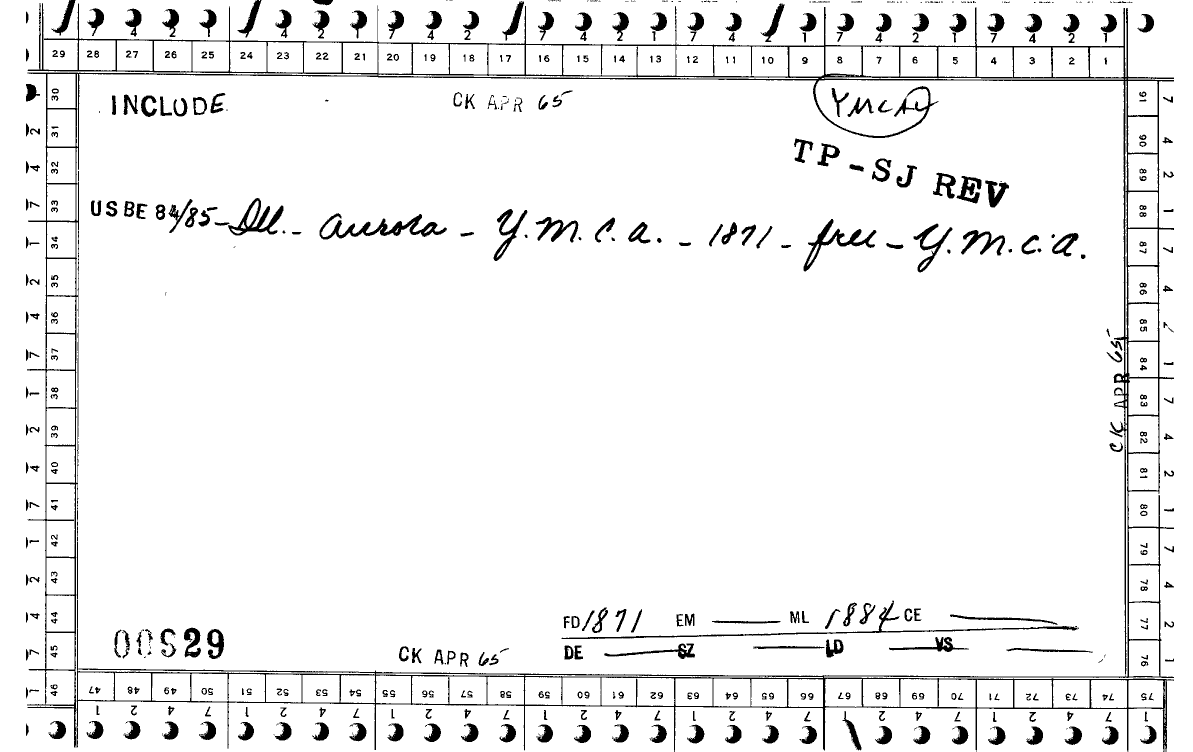 7 4 2 1 7 4 2 1 7 4 2 1 7 4 2 1 7 4 2 1 7 4 2 1 7 4 2 1
29 28 27 26 25 24 23 22 21 20 19 18 17 16 15 14 13 12 11 10 9 8 7 6 5 4 3 2 1
INCLUDE CK APR 65 YMCA
TP-SJ REV
USBE 84/85 - Ill. - Aurora - Y.M.C.A. - 1871 - free - Y.M.C.A.
CK APR 65
FD 1871 EM ML 1884 CE
DE SZ LD VS
00S29
CK APR 65
30 31 32 33 34 35 36 37 38 39 40 41 42 43 44 45 46
2 4 7 1 2 4 7 1 2 4 7 1 2 4 7 1
91 90 89 88 87 86 85 84 83 82 81 80 79 78 77 76 75
7 4 2 1 7 4 2 1 7 4 2 1 7 4 2 1
47 48 49 50 51 52 53 54 55 56 57 58 59 60 61 62 63 64 65 66 67 68 69 70 71 72 73 74
1 2 4 7 1 2 4 7 1 2 4 7 1 2 4 7 1 2 4 7 2 4 7 1 2 4 7 1